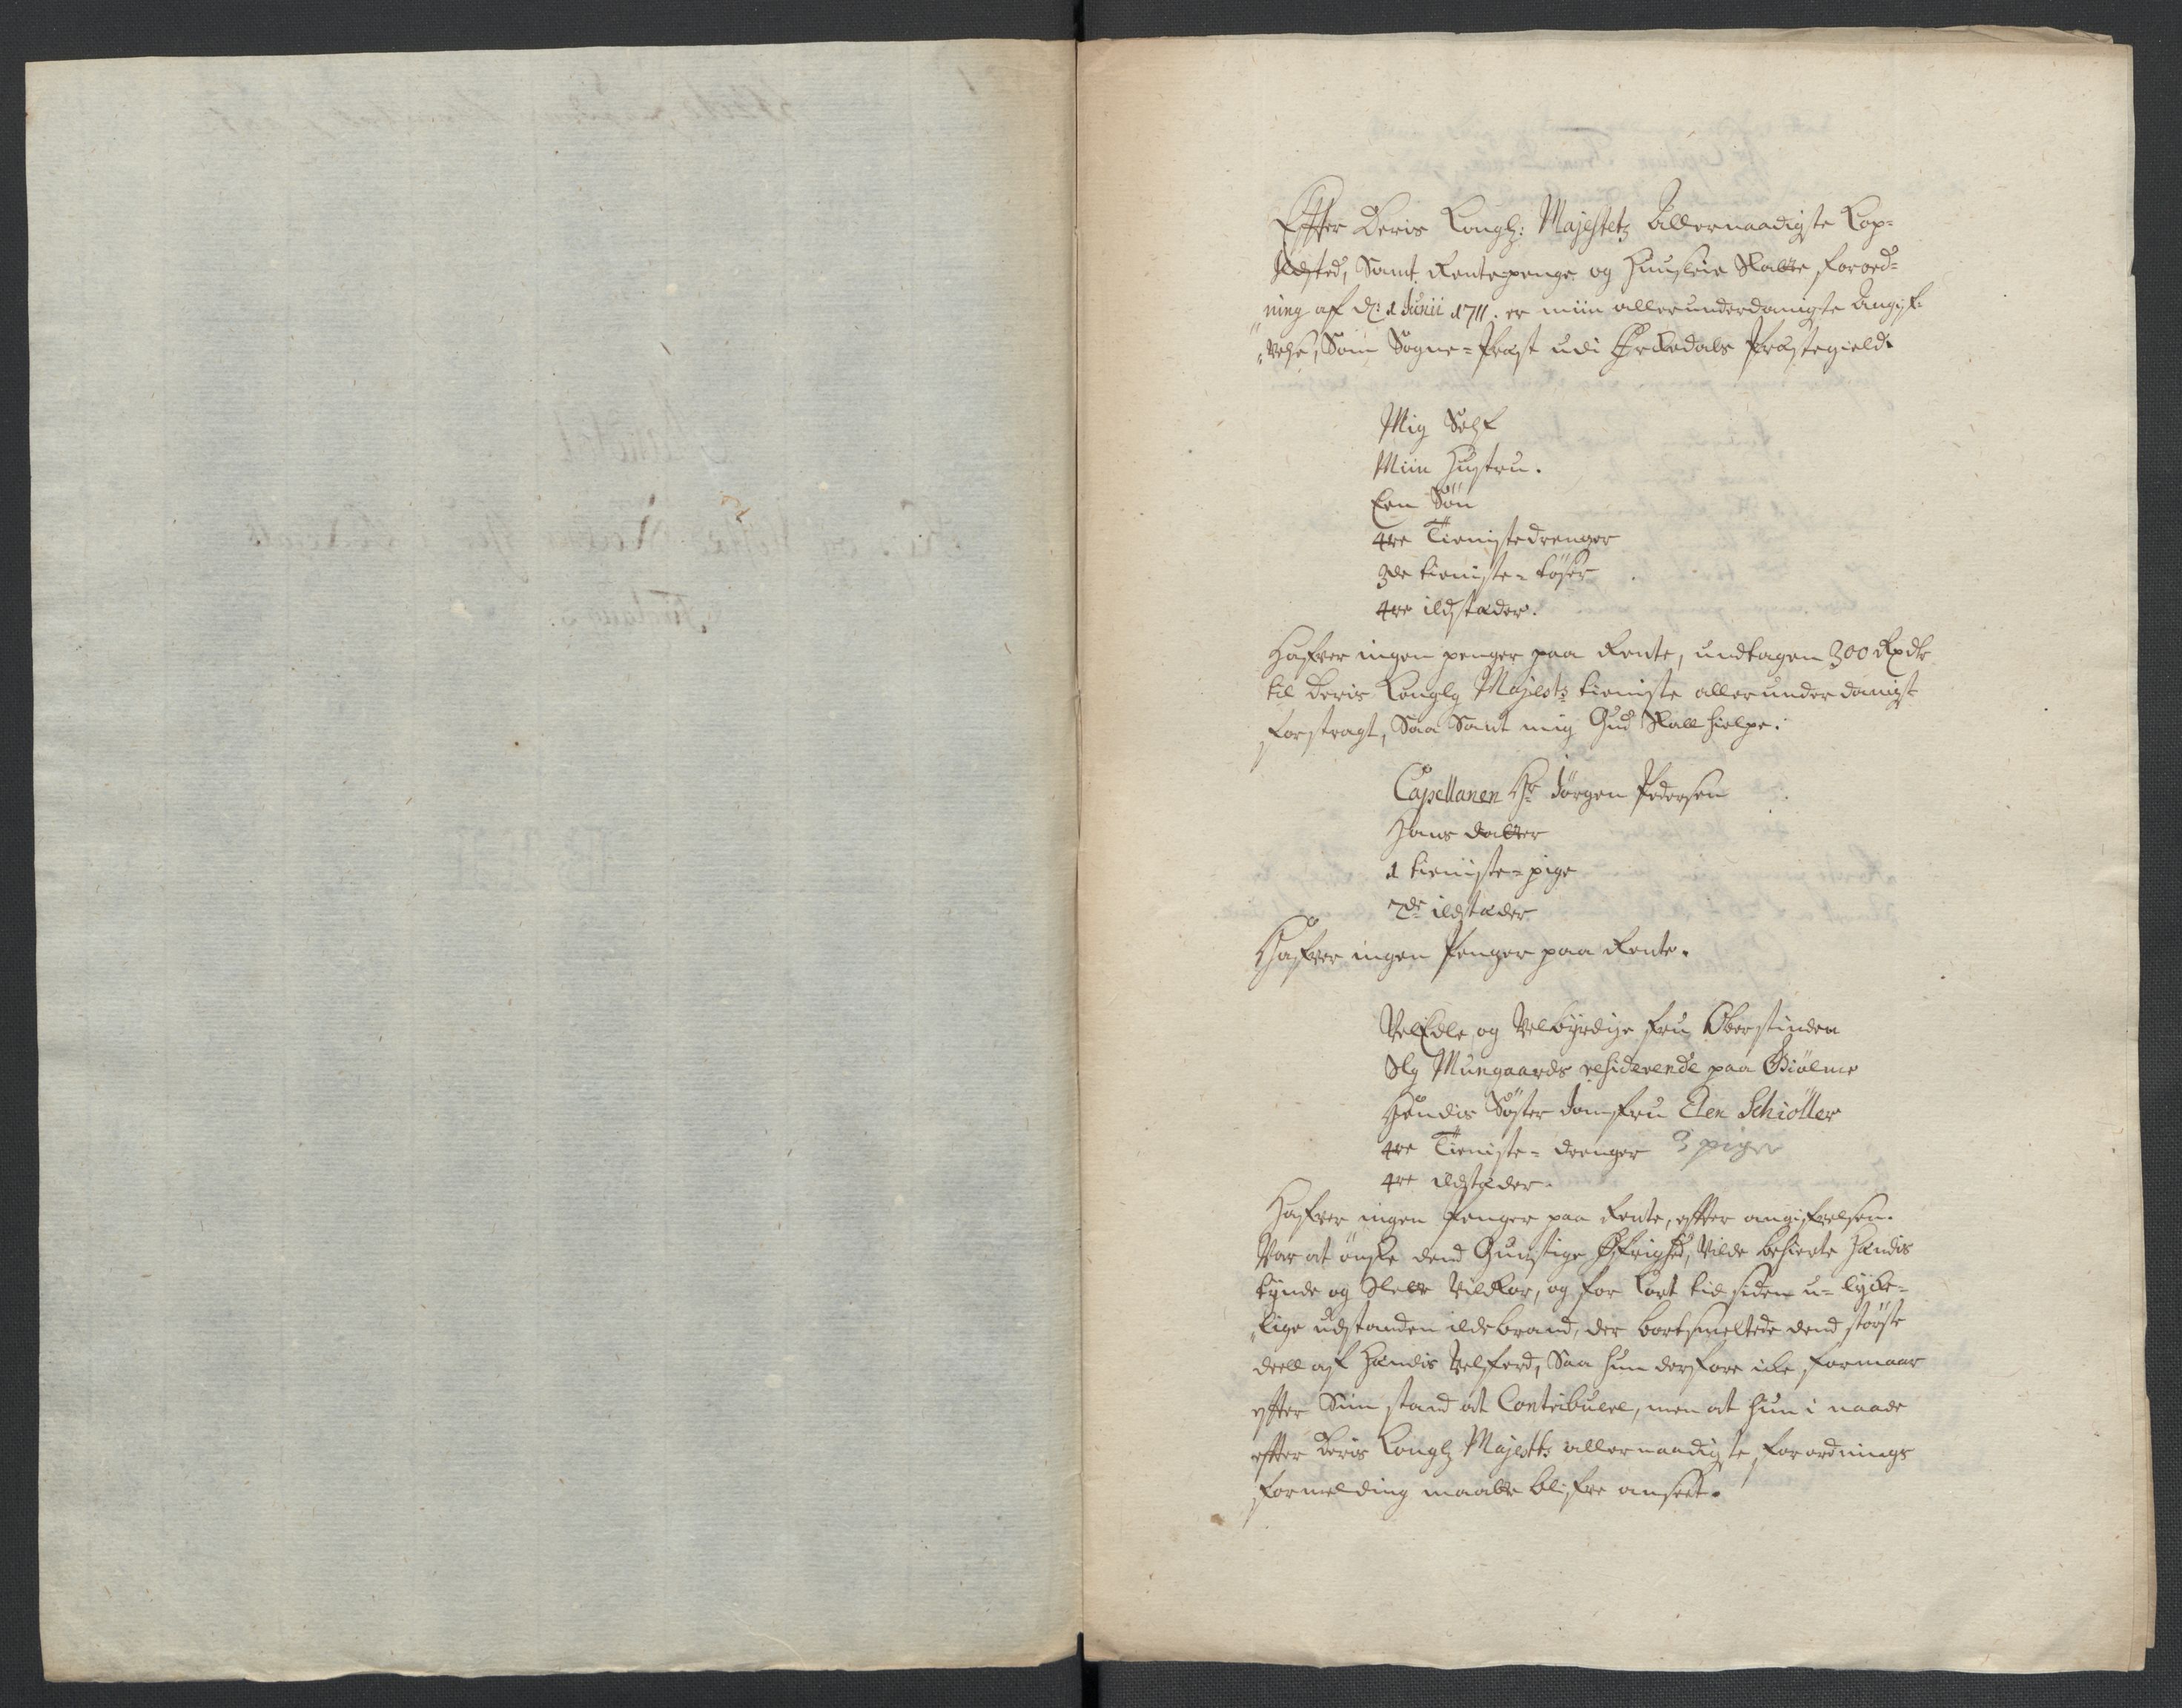 Effter Deris Kongl: Majestetz Allernaadigste Kop-
Ildsted, Samt Rentepenge og Huusleie Skatte forord-
ning af d: 1 Junii 1711. er miin allerunderdanigste Angif-
velse, Som Sogne-Præst udi Orkedals Præstegield.
Mig Self
Miin Hustru.
Een Søn
4re Tienistedrenger
3de tieniste-tøser
4re ildstæder.
Hafver ingen penger paa Rente, undtagen 300 Rxdr
til Deris Konglg Majestz tieniste allerunderdanigst
forstragt, Saa Sant mig Gud Skall hielpe.
Capellanen Hr Jørgen Pedersen
Hans datter
1 tieniste-pige
2de ildstæder
Hafver ingen Penger paa Rente.
VelEdle og Velbyrdige Fru Oberstinden
Slg Mungaards residerende paa Giølme
Hendis Søster Jomfru Elen Schiøller
4re Tieniste-drenger 3 piger
4re ildstæder.
Hafver ingen Penger paa Rente, effter angifvelsen.
Var at ønske dend Gunstige Øfrighed, Vilde behierte Hændis
tynde og Slette Vilkor, og for kort tid siden u-lycke-
lige udstanden ildebrand, der bortsmeltede dend største
deell af Hændis Velferd, Saa hun derfore icke formaar
effter Siin stand at Contribuere, men at hun i naade
effter Deris Kongl Majestts allernaadigste forordnings
formelding maatte blifve anseet.